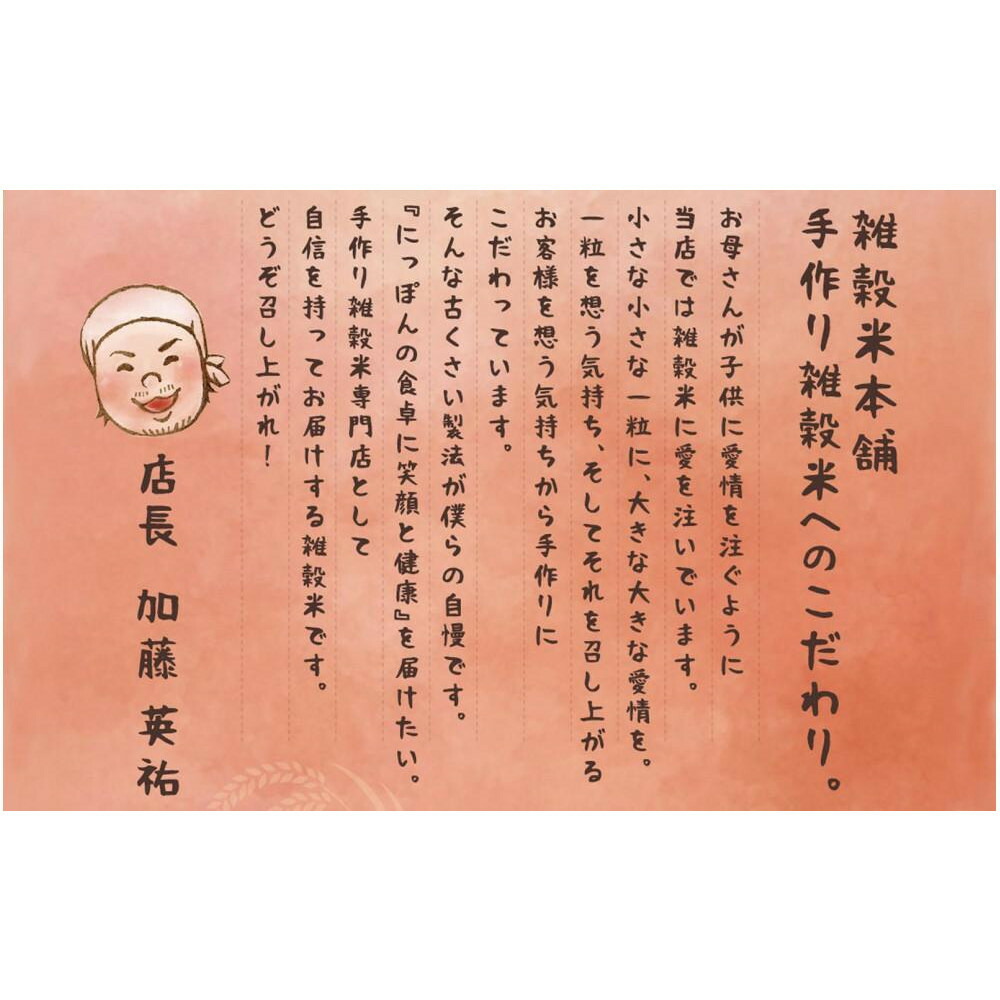 雑穀米本舗
手作り雑穀米へのこだわり。
お母さんが子供に愛情を注ぐように
当店では雑穀米に愛を注いでいます。
小さな小さな一粒に、大きな大きな愛情を。
一粒を想う気持ち、そしてそれを召し上がる
お客様を想う気持ちから手作りに
こだわっています。
そんな古くさい製法が僕らの自慢です。
『にっぽんの食卓に笑顔と健康』を届けたい。
手作り雑穀米専門店として
自信を持ってお届けする雑穀米です。
どうぞ召し上がれ！
店長 加藤 英祐